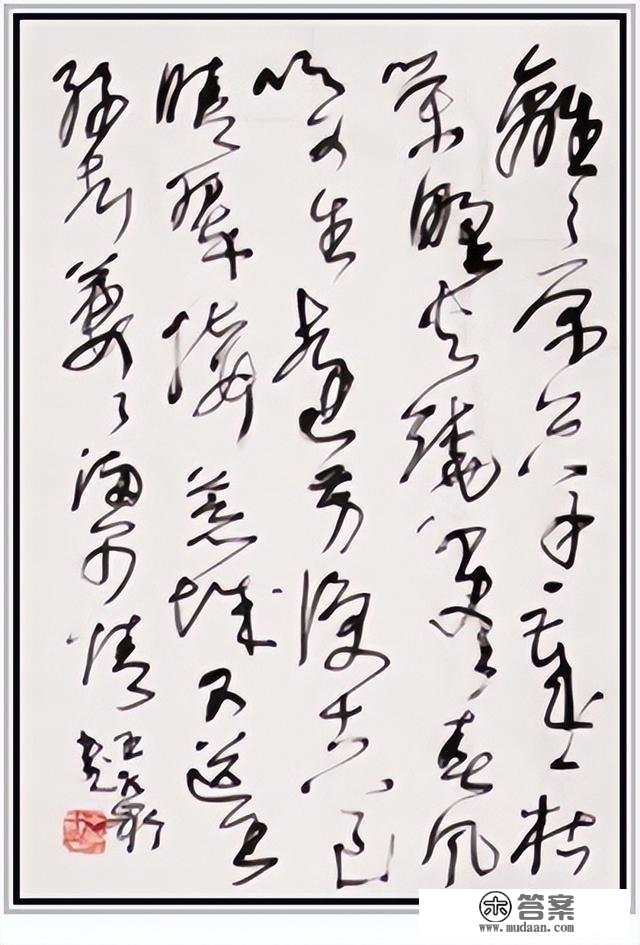 離々原上草一歲一枯
榮野火燒不盡春風
吹又生遠芳侵古道
晴翠接荒城又送王
孫去萋々滿別情
答案
www.mudaan.com